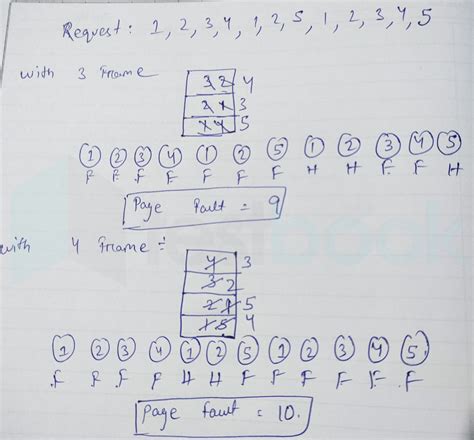 Request: 1, 2, 3, 4, 1, 2, 5, 1, 2, 3, 4, 5
with 3 Frame
3 2 4
2 1 3
1 4 5
1 2 3 4 1 2 5 1 2 3 4 5
F F F F F F F H H F F H
Page fault = 9
with 4 Frame :-
4 3
3 2
2 1 5
1 5 4
1 2 3 4 1 2 5 1 2 3 4 5
F F F F H H F F F F F F
Page fault = 10.